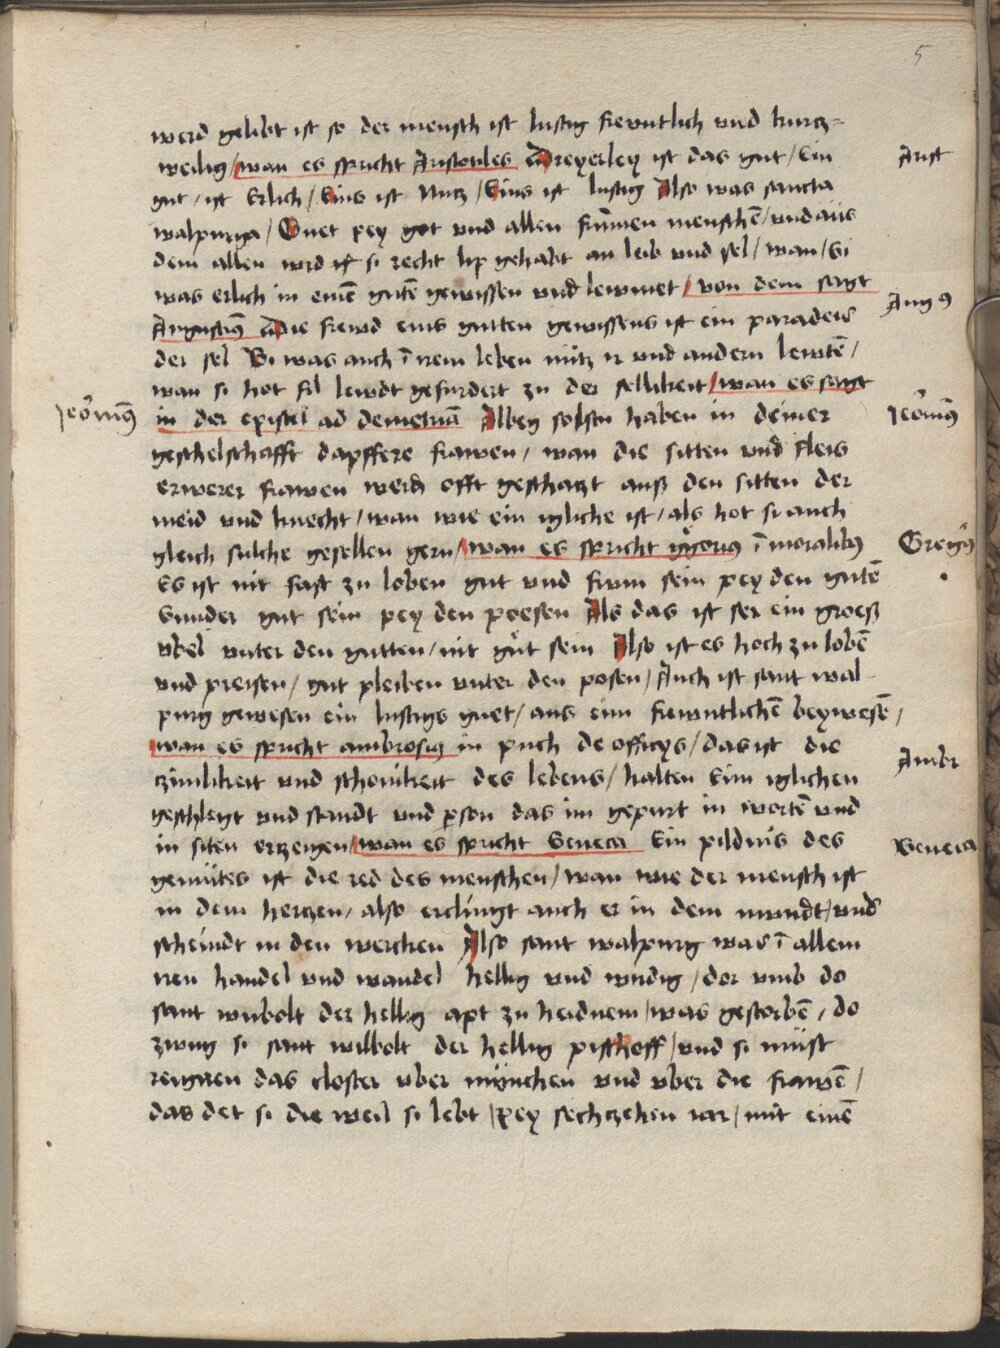 5
werd gelibt ist so der mensch ist lustig frewntlich vnd kurtz=
weilig / wan es spricht Aristotiles Dreyerley ist das gut / Ein
Arist
gut / ist Erlich / Eins ist Nutz / Eins ist lustig Also was sancta
walpurga / Guet pey got vnd allen frūmen menschē / vnd aüs
dem allen wrd isẜ si recht lip gehabt an leib vnd sel / wan / Si
was erlich in einē gutē gewissen vnd lewmet / von dem sagt
Augꝰ
Augustinꝰ Die frewd eins gutten gewissens ist ein paradeis
der sel Si was auch ī irem leben nütz ir vnd andern lewtē /
wan si hot fil lewdt gefurdert zu der sellikeit / wan es sagt
Jeōnimꝰ
in der epistel ad demetriā Albeg solstu haben in deiner
Jeōnimꝰ
geschelschafft dapffere frawen / wan die sitten vnd fleis
erwerer frawen werdn offt geschatzt auß den sitten der
meid vnd knecht / wan wie ein igliche ist / als hot si auch
gleich sulche gesellen gern / wan es spricht ggorius ī moralibꝰ
Gregꝰ
Es ist nit fast zu loben gut vnd frum sein pey den gutē
Sunder gut sein pey den poesen Als das ist ser ein groeß
vbel vnter den gutten / nit gut sein Also ist es hoch zu lobē
vnd preisen / gut pleiben vnter den posen / Auch ist sant wal-
purg gewesen ein lustigs guet / aus eim frewntlichē beywesē /
wan es spricht ambrosiꝰ in puch de officys / das ist die
Ambr
zimlikeit vnd schonikeit des lebens / halten Eim iglichen
geschlegt vnd standt vnd ꝑson das im gepurt in wortē vnd
in siten erzeigen / wan es spricht Seneca Ein pildnis des
Seneca
gemütes ist die red des menschen / wan wie der mensch ist
in dem hertzen / also erclingt auch er in dem mundt / vnd
scheindt in den wercken Also sant walpurg was ī allem
iren handel vnd wandel hellig vnd wirdig / dor vmb do
sant wubolt der hellig apt zu heidnem / was gestorbē / do
zwung si sant wilbolt der hellig pischoff / vnd si müst
reigiren das closter vber münchen vnd vber die frawē /
das det si die weil si lebt / pey sechczehen iar / mit einē